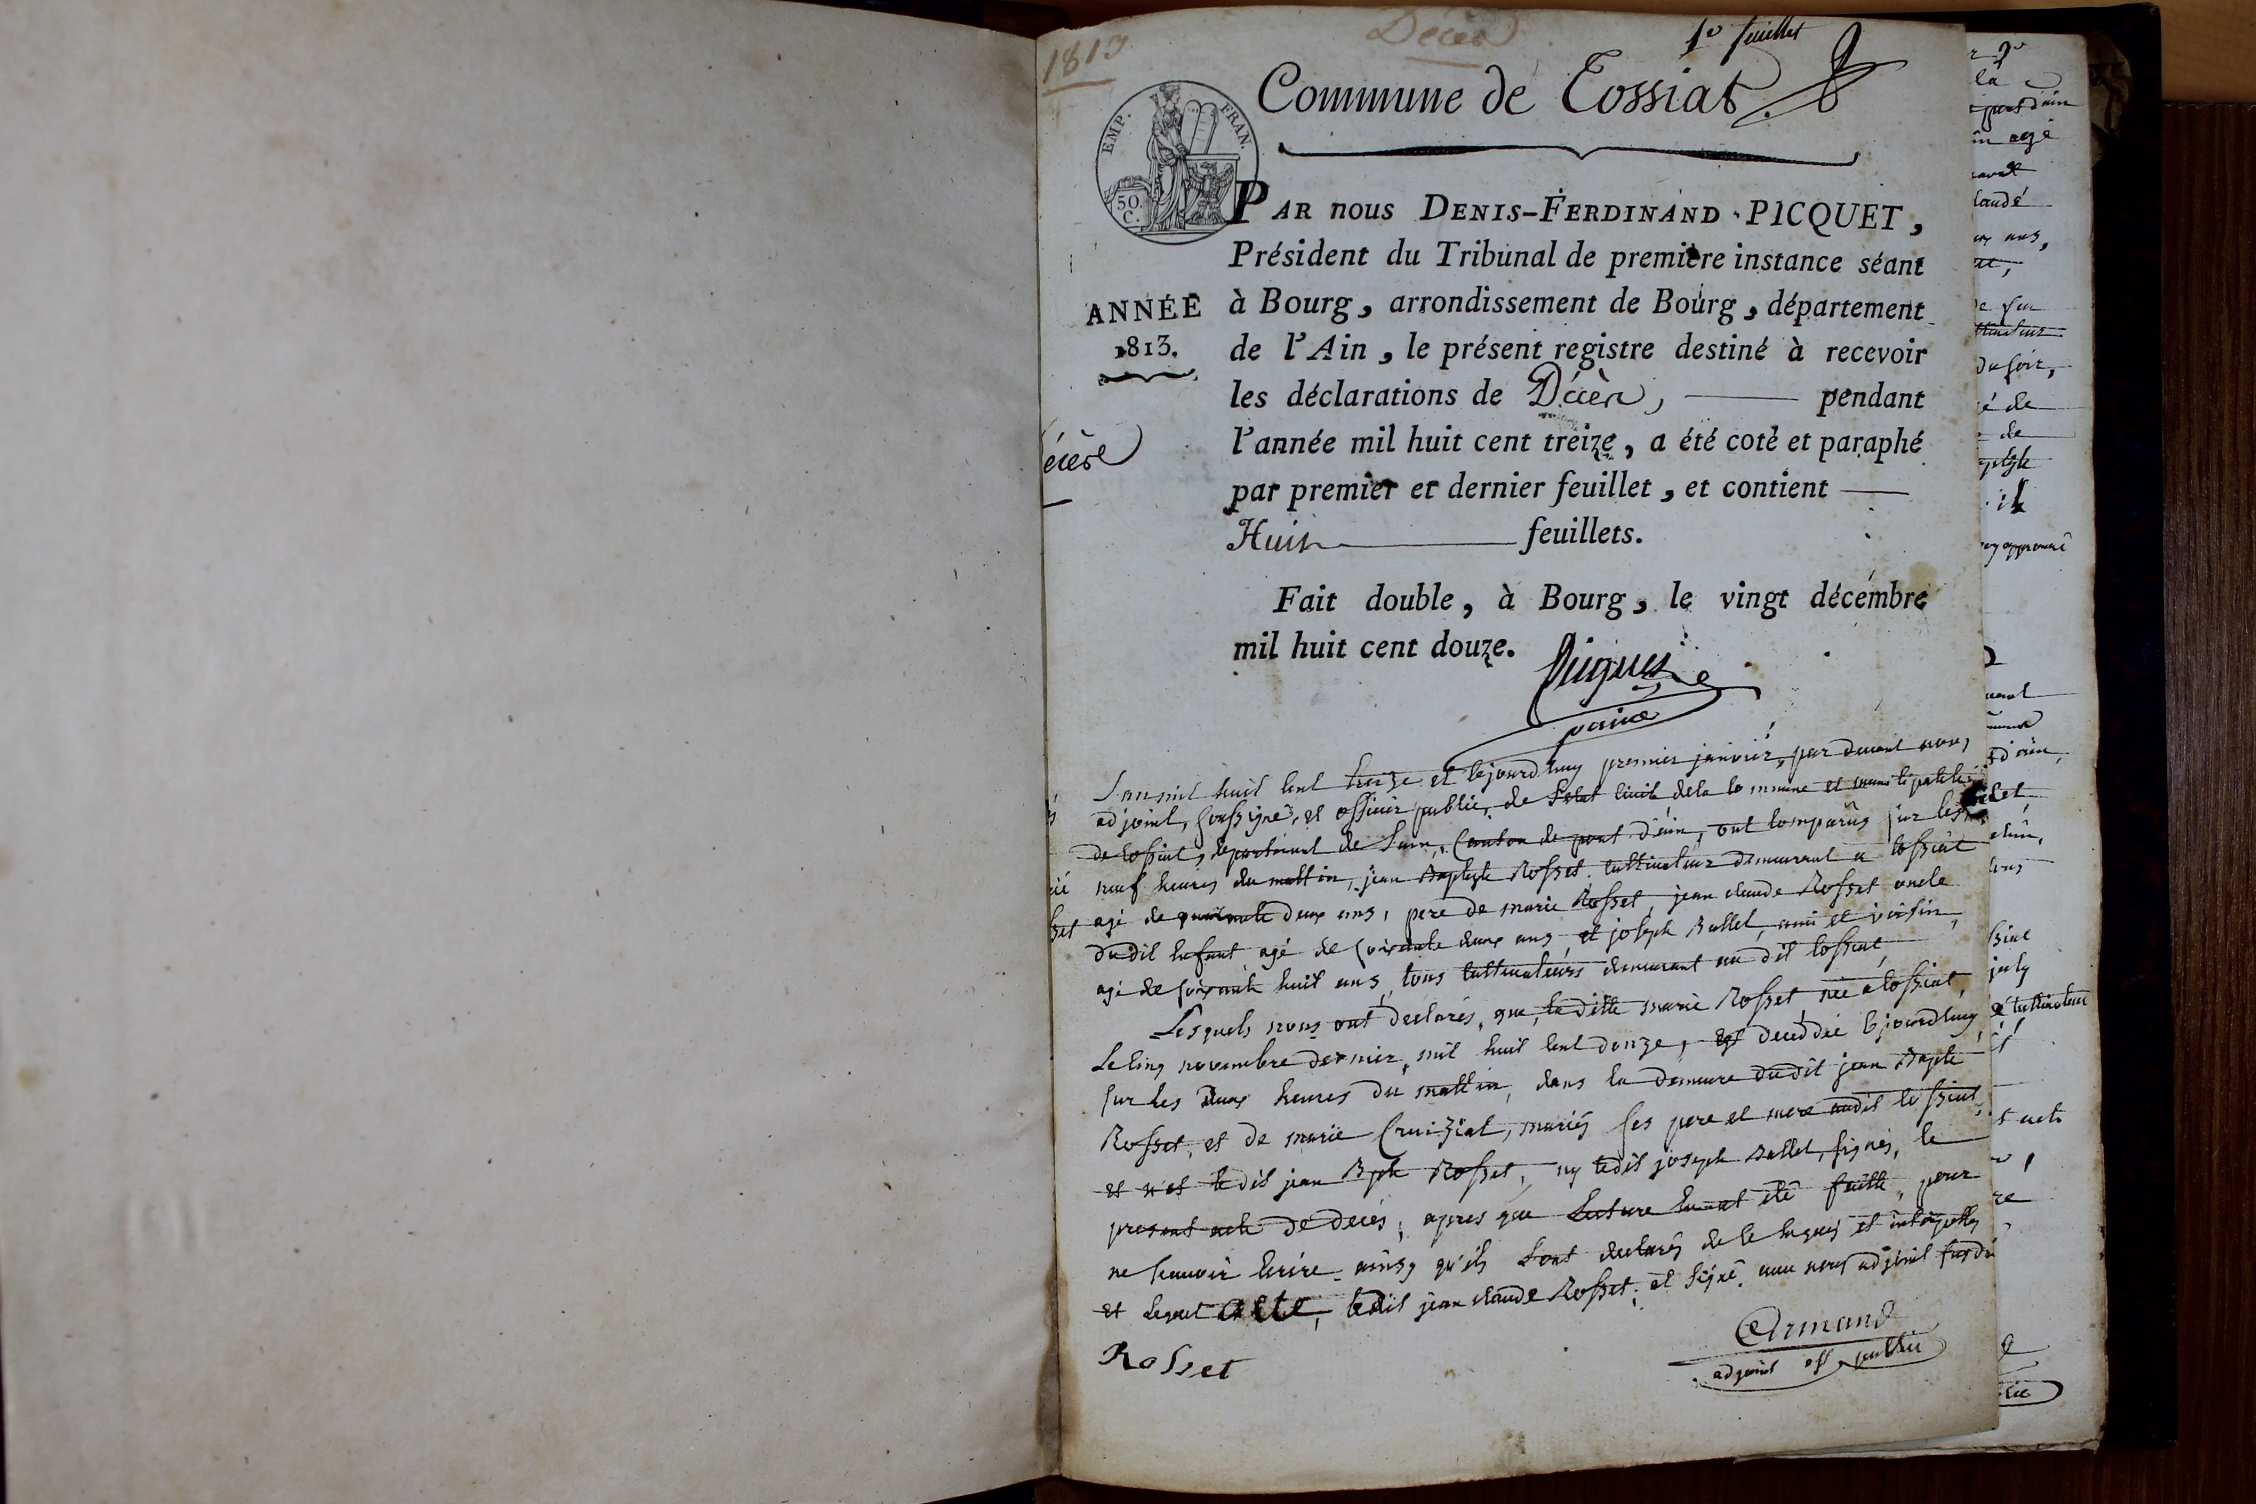 1813
Décès
1er feuillet
Commune de Tossiat
EMP. FRAN.
50 C.
PAR nous DENIS-FERDINAND PICQUET,
Président du Tribunal de première instance séant
à Bourg, arrondissement de Bourg, département
de l'Ain, le présent registre destiné à recevoir
les déclarations de Décès, pendant
l'année mil huit cent treize, a été coté et paraphé
par premier et dernier feuillet, et contient
Huit feuillets.
ANNÉE
1813.
écès
Fait double, à Bourg, le vingt décembre
mil huit cent douze.
Lan mil huit cent treize et cejourdhuy premier janvier, par devant nous,
adjoint, soussigné, et officier public, de letat civil de la commune et municipalité
de tossiat, departement de lain, Canton de pont d'ain, ont comparûs sur les
neuf heures du mattin, jean Baptiste Rosset cultivateur demeurant a tossiat
agé de quarante deux ans, pere de marie Rosset, jean claude Rosset oncle
dudit enfant agé de soixante deux ans et joseph Ballet, ami et voisin,
agé de soixante huit ans, tous cultivateurs demeurant au dit tossiat,
Lesquels nous ont declarés, que, la ditte marie Rosset née a tossiat,
Le cinq novembre dernier, mil huit cent douze, est deceddée cejourdhuy
sur les deux heures du mattin, dans la demeure dudit jean Bapte
Rosset, et de marie Cruiziat, mariés ses pere et mere audit tossiat,
et n'et ledit jean Bpte Rosset, ny ledit joseph Ballet, signés, le
present acte de decès, apres que Lecture leur at été faitte, pour
ne scavoir ecrire ainsy qu'ils L'ont declarés de ce requis et
et Lequel acte, ledit jean claude Rosset, at signé, avec nous adjoint susdit
Rosset
Armand
adjoint off public